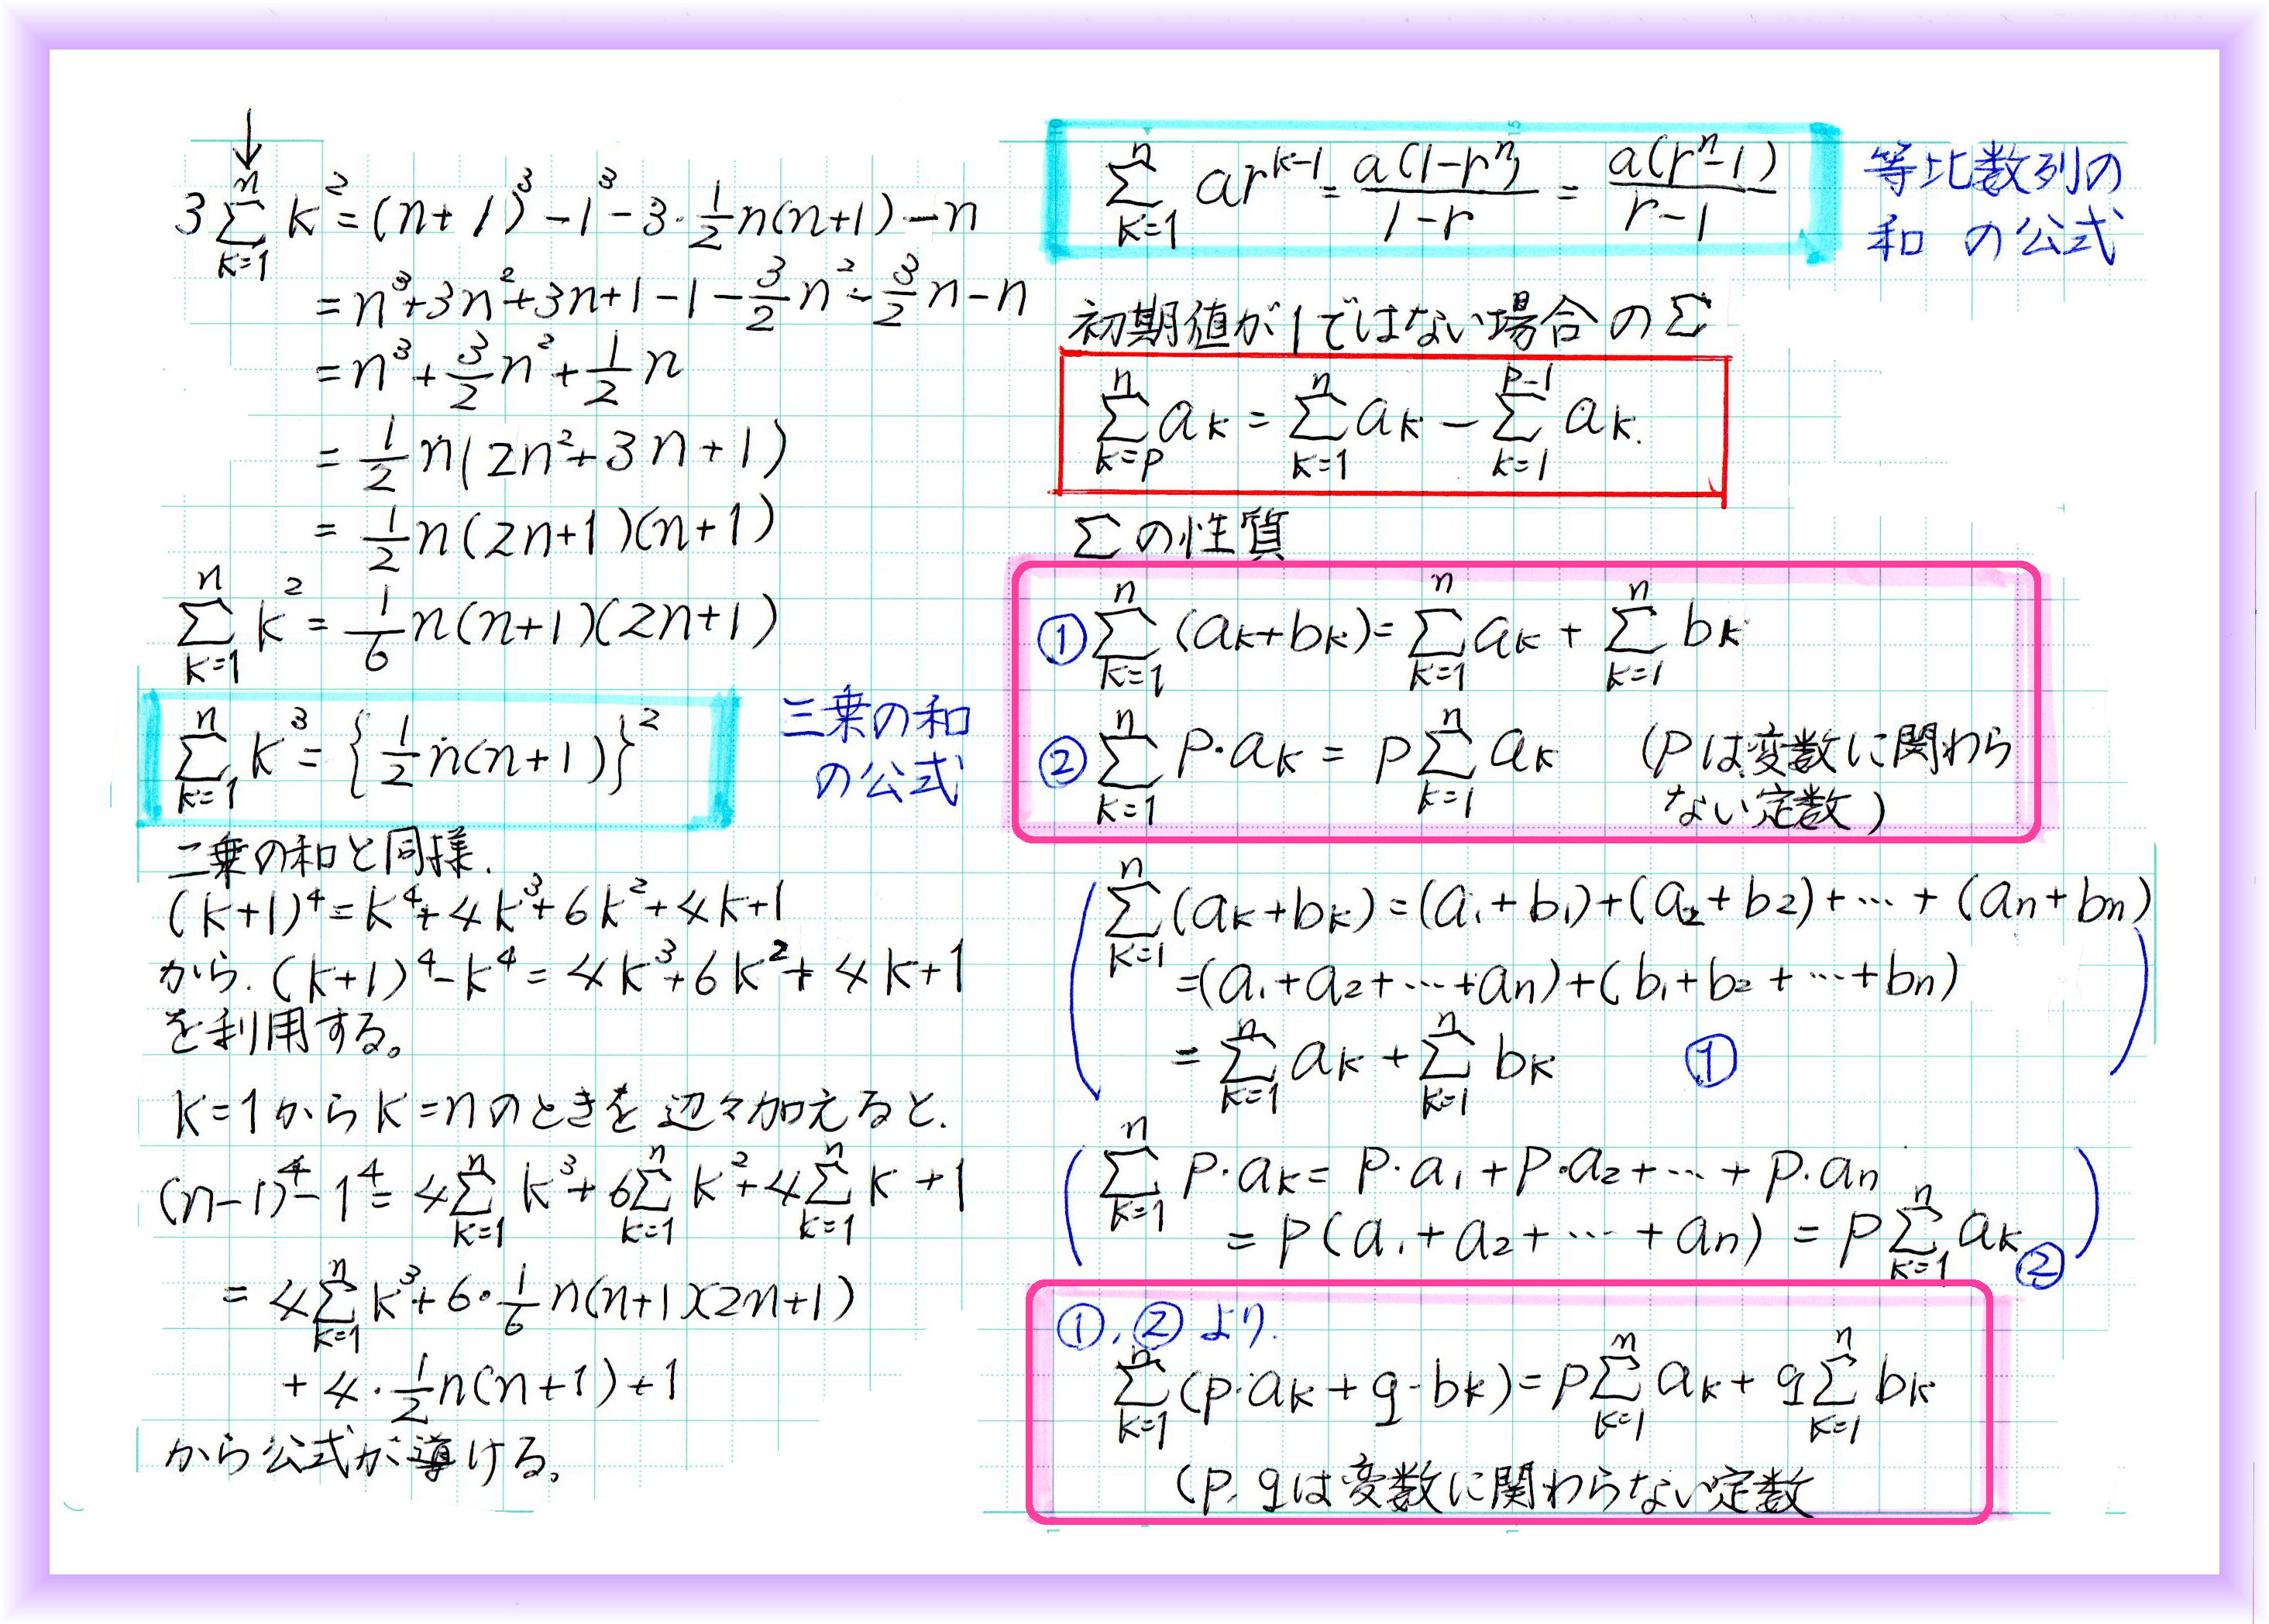 ↓
3∑_{k=1}^{n} k² = (n+1)³ - 1³ - 3・1/2 n(n+1) - n
= n³+3n²+3n+1-1-3/2 n²-3/2 n-n
= n³+3/2 n²+1/2 n
= 1/2 n(2n²+3n+1)
= 1/2 n(2n+1)(n+1)
∑_{k=1}^{n} k² = 1/6 n(n+1)(2n+1)
∑_{k=1}^{n} k³ = {1/2 n(n+1)}²
三乗の和
の公式
二乗の和と同様.
(k+1)⁴=k⁴+4k³+6k²+4k+1
から. (k+1)⁴-k⁴ = 4k³+6k²+4k+1
を利用する。
k=1からk=nのときを辺々加えると.
(n-1)⁴-1⁴= 4∑_{k=1}^{n} k³+6∑_{k=1}^{n} k²+4∑_{k=1}^{n} k+1
= 4∑_{k=1}^{n} k³+6・1/6 n(n+1)(2n+1)
+4・1/2 n(n+1)+1
から公式が導ける。
∑_{k=1}^{n} ar^{k-1} = a(1-rⁿ)/(1-r) = a(rⁿ-1)/(r-1)
等比数列の
和 の公式
初期値が1ではない場合のΣ
∑_{k=p}^{n} ak = ∑_{k=1}^{n} ak - ∑_{k=1}^{p-1} ak.
Σの性質
①∑_{k=1}^{n} (ak+bk)=∑_{k=1}^{n} ak + ∑_{k=1}^{n} bk
②∑_{k=1}^{n} p・ak = p∑_{k=1}^{n} ak (pは変数に関わら
ない定数)
(∑_{k=1}^{n} (ak+bk)=(a₁+b₁)+(a₂+b₂)+…+(an+bn)
=(a₁+a₂+…+an)+(b₁+b₂+…+bn)
= ∑_{k=1}^{n} ak + ∑_{k=1}^{n} bk ①)
(∑_{k=1}^{n} p・ak = p・a₁+p・a₂+…+p・an
= p(a₁+a₂+…+an) = p∑_{k=1}^{n} ak ②)
①,②より.
∑_{k=1}^{n} (p・ak+q・bk)=p∑_{k=1}^{n} ak + q∑_{k=1}^{n} bk
(p,qは変数に関わらない定数